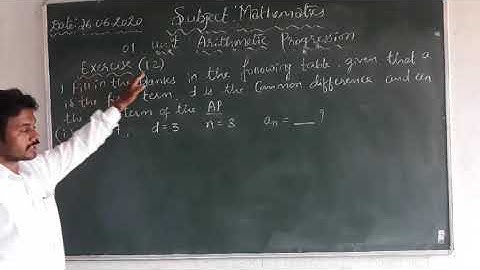 Date: 26.06.2020
Subject: Mathematics
01 unit Arithmetic Progression
Exercise (1.2)
1 Fill in the blanks in the following table, given that a
is the term, d is the Common difference and an
the term of the AP
d=3 n=8 an = __ ?